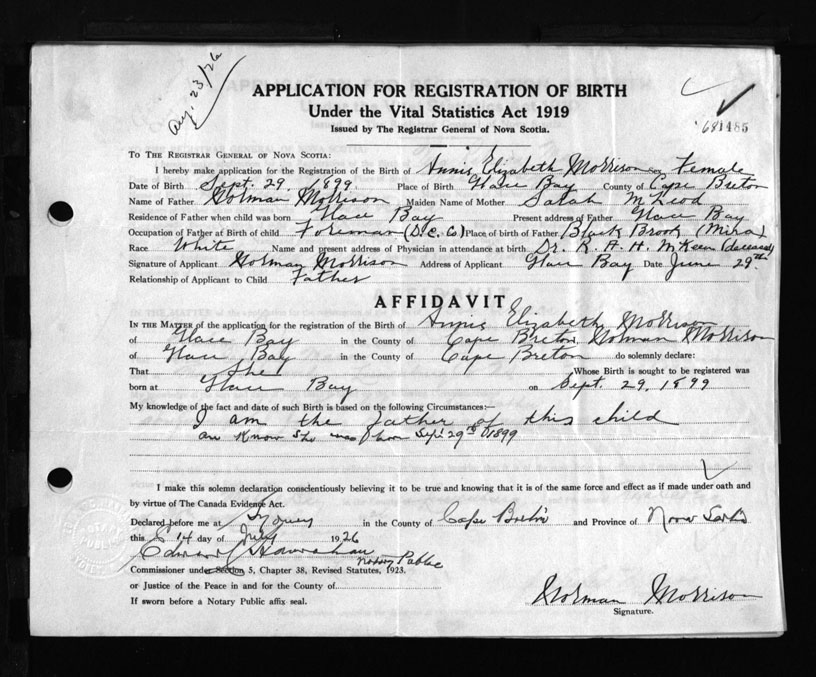 Aug. 23/26
APPLICATION FOR REGISTRATION OF BIRTH
Under the Vital Statistics Act 1919
Issued by The Registrar General of Nova Scotia.
681485
To The Registrar General of Nova Scotia:
I hereby make application for the Registration of the Birth of Annie Elizabeth Morrison sex Female
Date of Birth Sept. 29, 1899 Place of Birth Glace Bay County of Cape Breton
Name of Father Norman Morrison Maiden Name of Mother Sarah McLeod
Residence of Father when child was born Glace Bay Present address of Father Glace Bay
Occupation of Father at Birth of child Foreman (D.C. Co) Place of birth of Father Black Brook (Mira)
Race White Name and present address of Physician in attendance at birth Dr. K. A. H. McKeen (deceased)
Signature of Applicant Norman Morrison Address of Applicant Glace Bay Date June 29th
Relationship of Applicant to Child Father
AFFIDAVIT
In the Matter of the application for the registration of the Birth of Annie Elizabeth Morrison
of Glace Bay in the County of Cape Breton, Norman Morrison
of Glace Bay in the County of Cape Breton do solemnly declare:
That She Whose Birth is sought to be registered was
born at Glace Bay on Sept. 29, 1899
My knowledge of the fact and date of such Birth is based on the following Circumstances:—
I am the father of this child
an know she was born Sept 29th 1899
I make this solemn declaration conscientiously believing it to be true and knowing that it is of the same force and effect as if made under oath and
by virtue of The Canada Evidence Act.
Declared before me at Sydney in the County of Cape Breton and Province of Nova Scotia
this 14 day of July 1926
Notary Public
Commissioner under Section 5, Chapter 38, Revised Statutes, 1923.
or Justice of the Peace in and for the County of
If sworn before a Notary Public affix seal.
Norman Morrison
Signature.
NOTARY PUBLIC